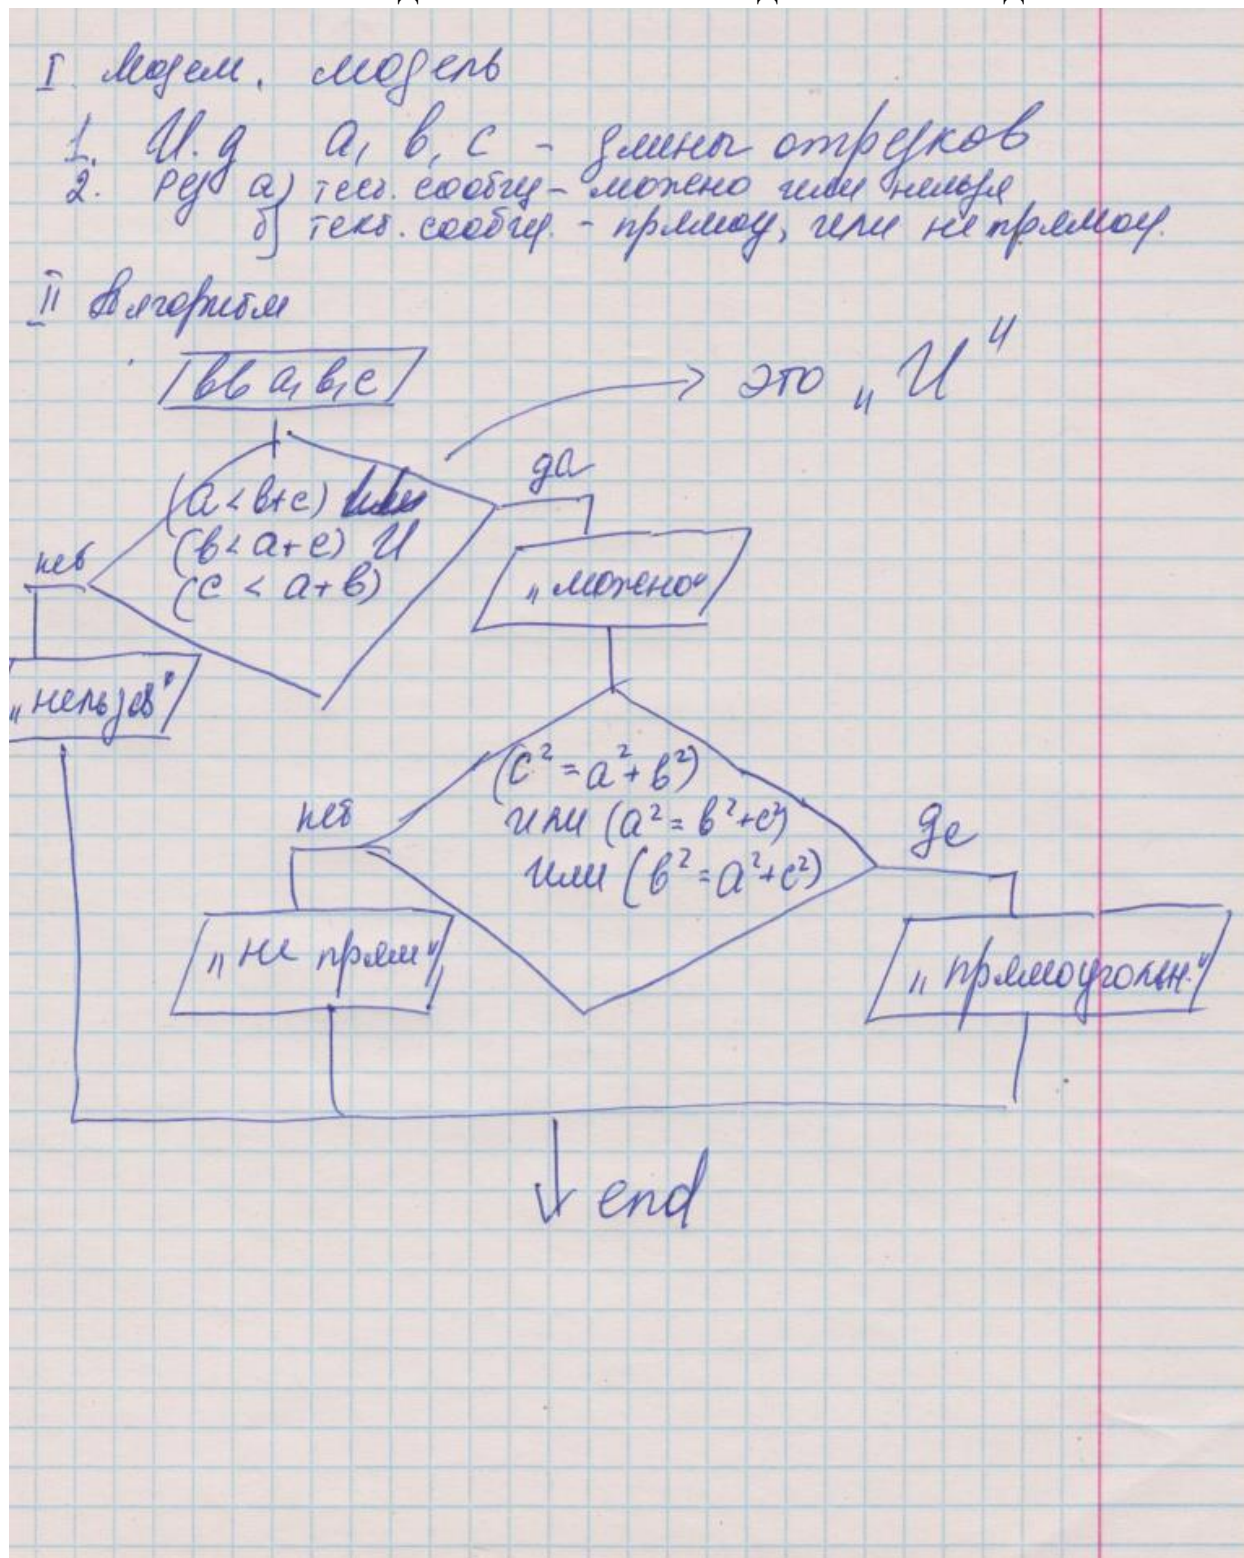 I Матем. модель
1. И.д a, в, с - длины отрезков
2. Рез а) текст. сообщ - можно или нельзя
б) текст. сообщ. - прямоу, или не прямоу.
II Алгоритм
вв а, в, с
→ это „И"
да
(a < в+с) или
(в < a+с) И
(с < a+в)
нет
„можно"
„нельзя"
(с² = a² + в²)
или (a² = в²+с²)
или (в² = a²+с²)
нет
да
„не прям"
„прямоугольн."
end